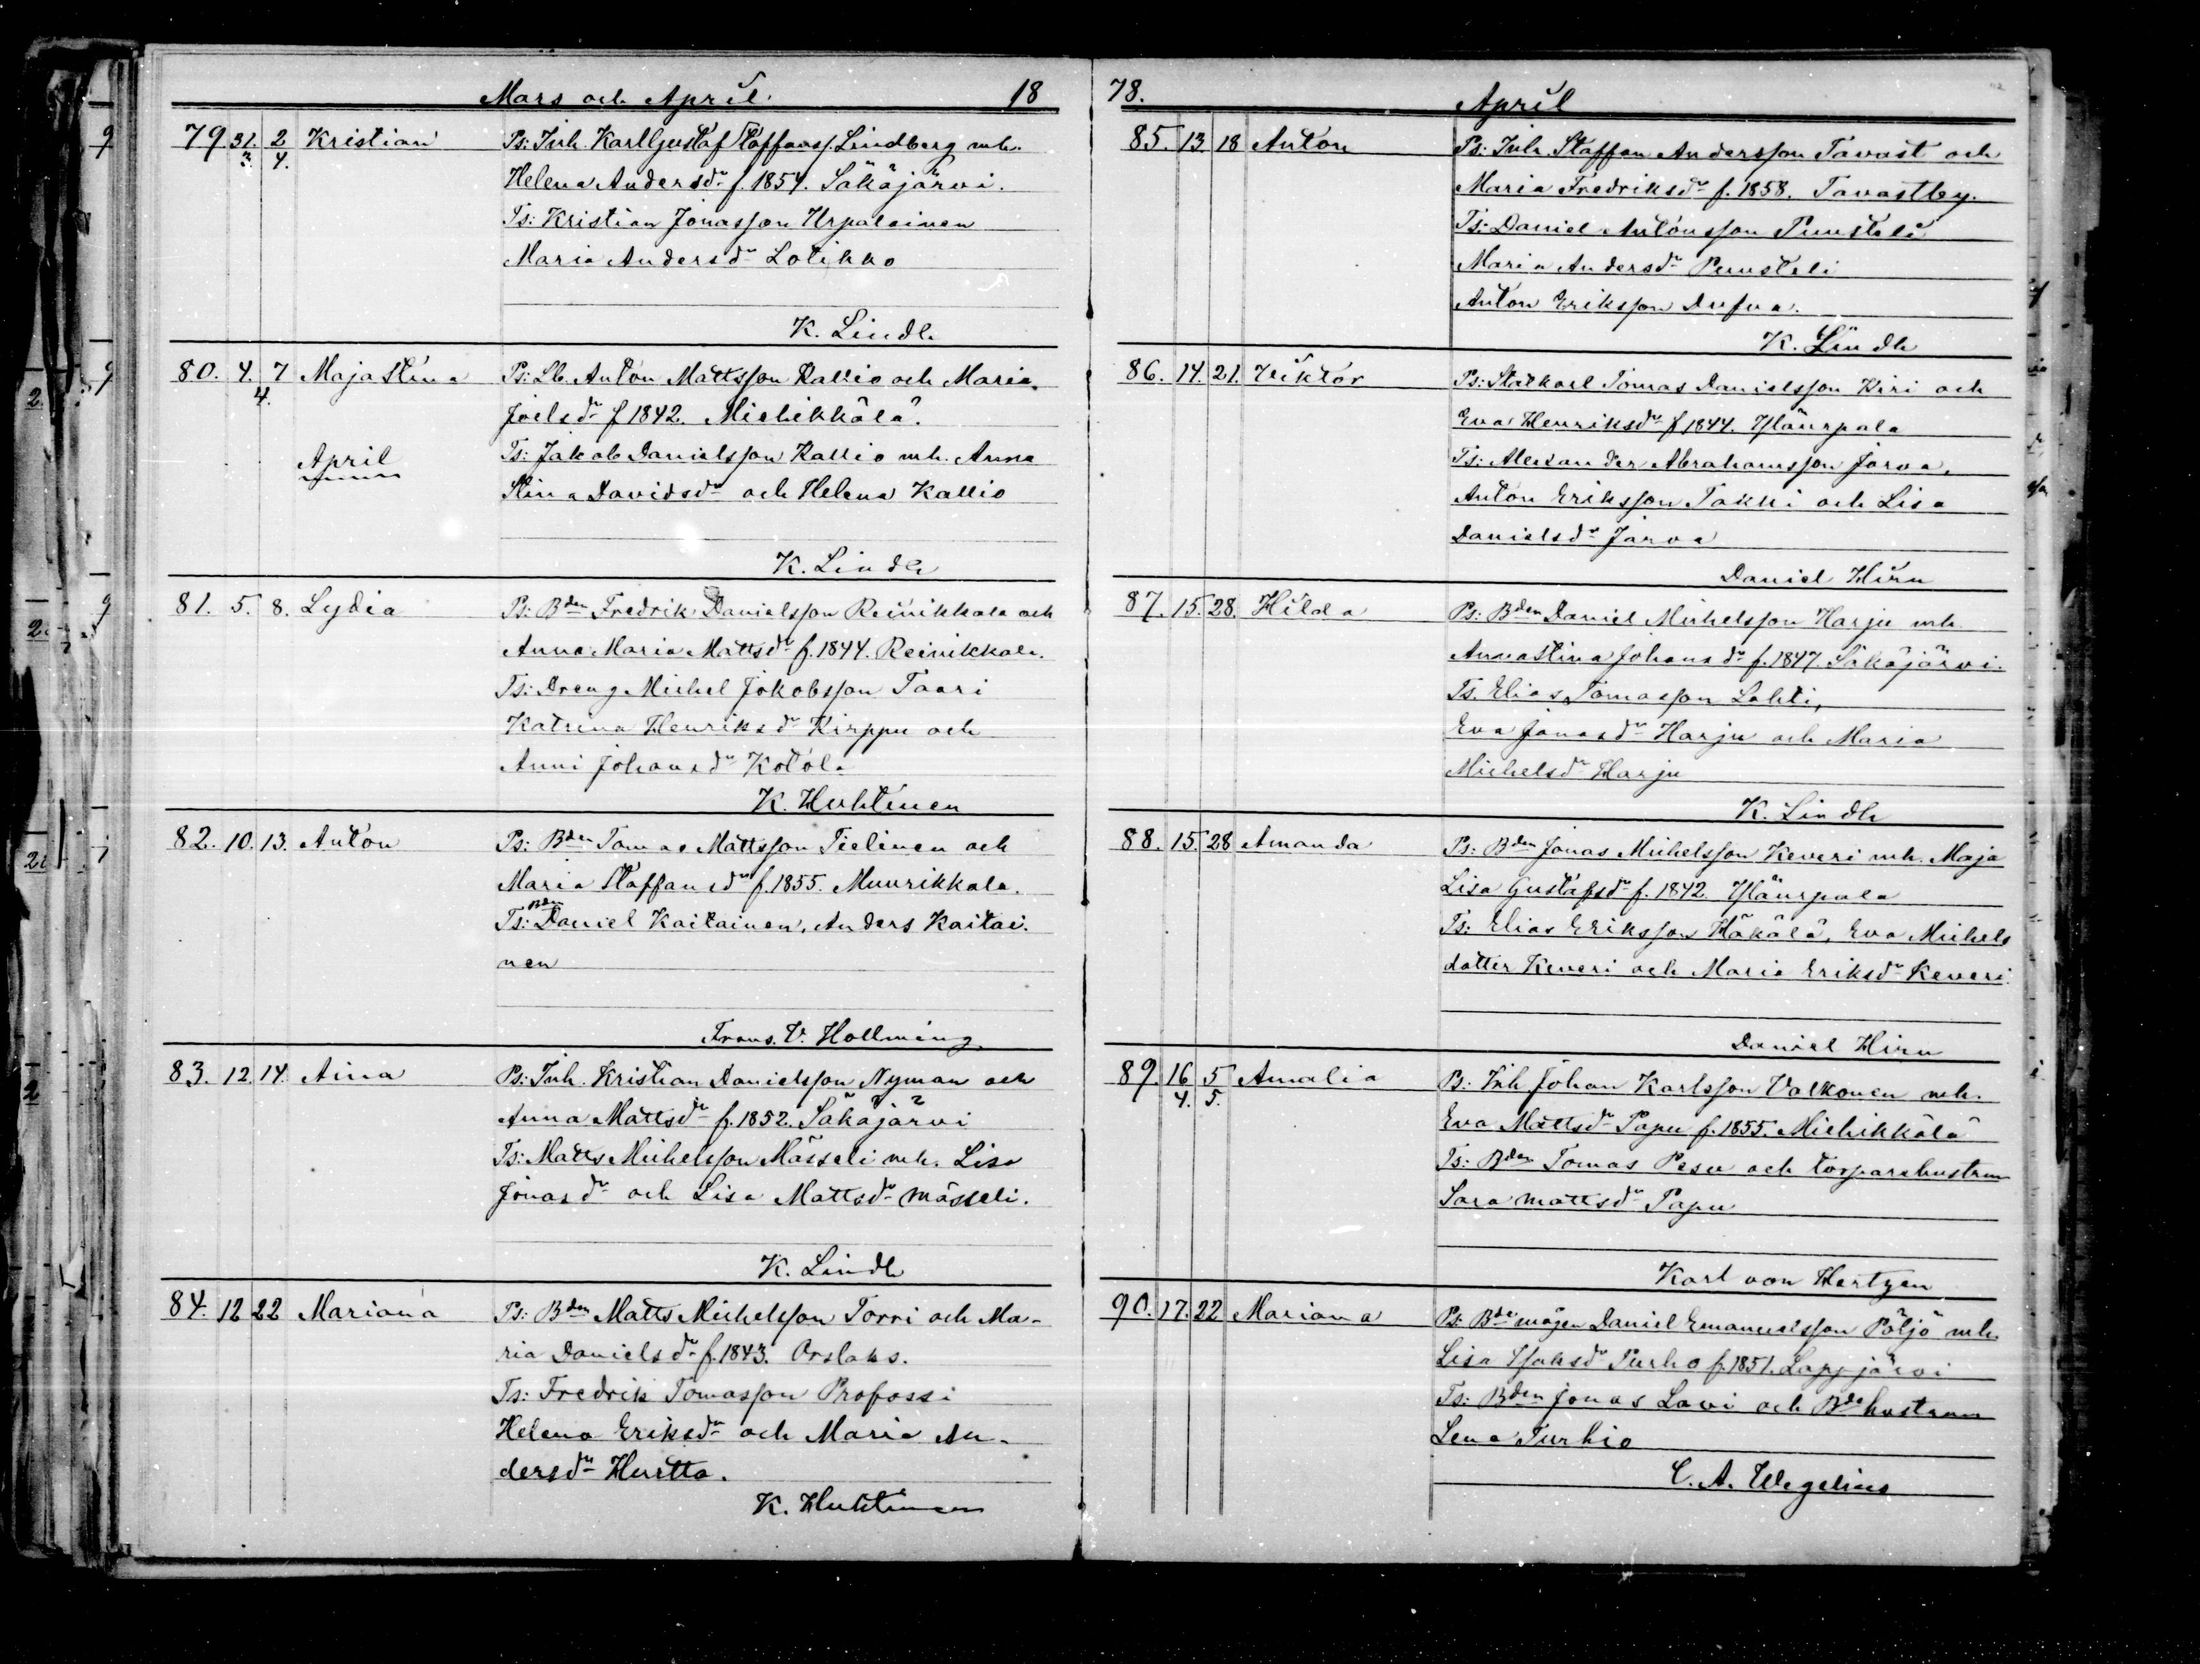 Mars och April. 18
79. 31. 3. 2 4. Kristian Ps: Inh. Karl Gustaf Staffanss. Lindberg mh.
Helena Andersdr f. 1854. Säkäjärvi.
Ts: Kristian Jonasson Urpalainen
Maria Andersdr Lotikko
K. Lindh
80. 4. 7 4. Maja Stina Ps: Lb. Anton Mattsson Kallio och Maria
Joelsdr f 1842. Miehikkälä.
April Ts: Jakob Danielsson Kallio mh. Anna
Stina Davidsdr och Helena Kallio
K. Lindh
81. 5. 8. Lydia Ps: Bden Fredrik Danielsson Reinikkala och
Anna Maria Mattsdr f. 1844. Reinikkala.
Ts: Dreng Michel Jakobsson Taari
Katrina Henriksdr Kirppu och
Anni Johansdr Kotola
K. Huhtinen
82. 10. 13. Anton Ps: Bden Tomas Mattsson Tielinen och
Maria Staffansdr f. 1855. Muurikkala.
Ts: Bden Daniel Kaitainen, Anders Kaitai-
nen
Frans. V. Hollming.
83. 12. 14. Aina Ps: Inh. Kristian Danielsson Nyman och
Anna Mattsdr f. 1852. Säkäjärvi
Ts: Matts Michelsson Mässeli mh. Lisa
Jonasdr och Lisa Mattsdr Mässeli.
K. Lindh
84. 12 22 Mariana Ps: Bden Matts Michelsson Torri och Ma-
ria Danielsdr f. 1843. Orslaks.
Ts: Fredrik Tomasson Profossi
Helena Eriksdr och Maria An-
dersdr Hurtta.
K. Huhtinen
78. April
85. 13 18 Anton Ps: Inh. Staffan Andersson Tavast och
Maria Fredriksdr f. 1858. Tavastby.
Ts: Daniel Antonsson Puusteli
Maria Andersdr Puusteli
Anton Eriksson Dufva.
K. Lindh
86. 14. 21. Viktor Ps: Statkarl Tomas Danielsson Kiri och
Eva Henriksdr f 1844. Yläurpala
Ts: Alexander Abrahamsson Jarva,
Anton Eriksson Takki och Lisa
Danielsdr Jarva
Daniel Hirn
87. 15. 28. Hilda Ps: Bden Daniel Michelsson Harju mh.
Annastina Johansdr f. 1847. Säkäjärvi.
Ts. Elias Tomasson Lahti,
Eva Jonasdr Harju och Maria
Michelsdr Harju
K. Lindh
88. 15. 28 Amanda Ps: Bden Jonas Michelsson Keveri mh. Maja
Lisa Gustafsdr f. 1842. Yläurpala
Ts: Elias Eriksson Häkälä, Eva Michels
dotter Keveri och Maria Eriksdr Keveri.
Daniel Hirn
89. 16 4. 5 5. Amalia Ps. Inh Johan Karlsson Valkonen mh.
Eva Mattsdr Papu f. 1855. Miehikkälä
Ts: Bden Tomas Pesu och torparehustrun
Sara Mattsdr Papu
Karl von Hertzen
90. 17. 22 Mariana Ps: Bdemågen Daniel Emanuelsson Pöljö mh.
Lisa Isaksdr Turho f. 1851. Lappjärvi
Ts: Bden Jonas Lavi och Bdehustrun
Lena Turkio
C. A. Wegelius